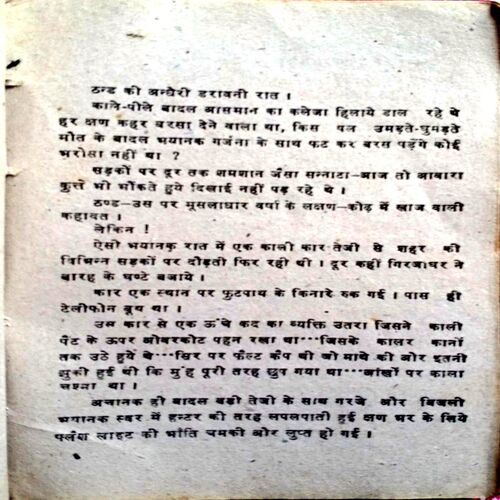 ठन्ड की अन्धेरी डरावनी रात ।
काले-पीले बादल आसमान का कलेजा हिलाये डाल रहे थे
हर क्षण कहर बरसा देने वाला था, किस पल उमड़ते-घुमड़ते
मौत के बादल भयानक गर्जना के साथ फट कर बरस पड़ेंगे कोई
भरोसा नहीं था ?
सड़कों पर दूर तक शमशान जैसा सन्नाटा-आज तो आवारा
कुत्ते भी भौंकते हुये दिखाई नहीं पड़ रहे थे ।
ठण्ड-उस पर मूसलाधार वर्षा के लक्षण-कोढ़ में खाज वाली
कहावत ।
लेकिन !
ऐसी भयानक रात में एक काली कार तेजी से शहर की
विभिन्न सड़कों पर दौड़ती फिर रही थी । दूर कहीं गिरजाघर ने
बारह के घण्टे बजाये ।
कार एक स्थान पर फुटपाथ के किनारे रुक गई । पास ही
टेलीफोन बूथ था ।
उस कार से एक ऊंचे कद का व्यक्ति उतरा जिसने काली
पैंट के ऊपर ओवरकोट पहन रखा था···जिसके कालर कानों
तक उठे हुये थे···सिर पर फैल्ट कैप थी जो माथे की ओर इतनी
झुकी हुई थी कि मुंह पूरी तरह छुप गया था···आंखों पर काला
चश्मा था ।
अचानक ही बादल बड़ी तेजी के साथ गरजे और बिजली
भयानक स्वर में हन्टर की तरह लपलपाती हुई क्षण भर के लिये
फ्लैश लाइट की भांति चमकी और लुप्त हो गई ।